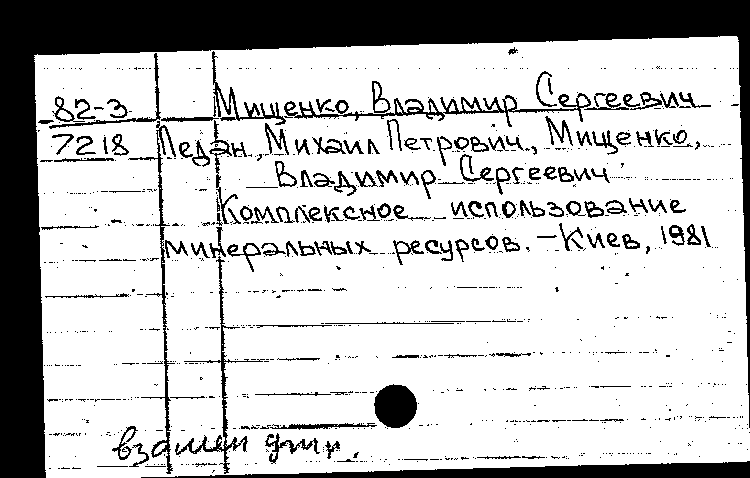 82-3 Мищенко, Владимир Сергеевич
7218 Педан, Михаил Петрович, Мищенко,
Владимир Сергеевич
Комплексное использование
минеральных ресурсов. – Киев, 1981
взамен